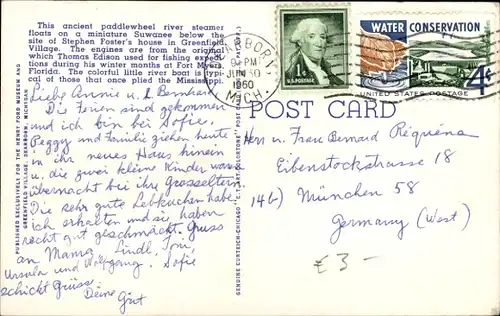 This ancient paddlewheel river steamer
floats on a miniature Suwanee below the
site of Stephen Foster's house in Greenfield
Village. The engines are from the original
which Thomas Edison used for fishing expedi-
tions during his winter months at Fort Myers,
Florida. The colorful little river boat is typi-
cal of those that once plied the Mississippi.
Liebe Annie u. l. Bernhard
Die Ferien sind gekommen
und ich bin bei Sofie.
Peggy und Familie ziehen heute
in ihr neues Haus hinein
u. die zwei kleine Kinder waren
übernacht bei ihre Grosseltern
Die sehr gute Lebkuchen habe
ich erhalten und sie haben
recht gut geschmeckt. Gruss
an Mama Lindl, Toni,
Ursula und Wolfgang. Sofie
schickt Grüsse
Deine Gut
PUBLISHED EXCLUSIVELY FOR THE HENRY FORD MUSEUM AND
GREENFIELD VILLAGE, DEARBORN, MICHIGAN
GENUINE CURTEICH-CHICAGO "C.T. ART-COLORTONE" POST CARD
9 PM
JUN 30
1960
MICH.
1¢
U.S. POSTAGE
WATER CONSERVATION
4¢
UNITED STATES POSTAGE
POST CARD
Herr u. Frau Bernard Requiena
Eibenstockstrasse 18
14b) München 58
Germany (West)
£3-